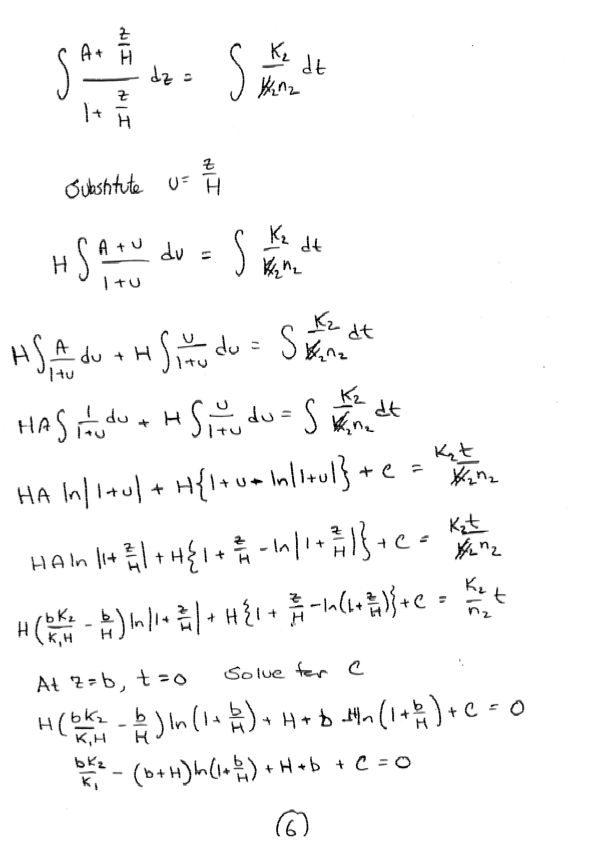 ∫ (A + z/H)/(1 + z/H) dz = ∫ K₂/n₂ dt
Substitute u = z/H
H ∫ (A + u)/(1 + u) du = ∫ K₂/n₂ dt
H ∫ A/(1+u) du + H ∫ u/(1+u) du = ∫ K₂/n₂ dt
HA ∫ 1/(1+u) du + H ∫ u/(1+u) du = ∫ K₂/n₂ dt
HA ln|1+u| + H{1+u - ln|1+u|} + c = K₂t/n₂
HA ln|1+z/H| + H{1+z/H - ln|1+z/H|} + c = K₂t/n₂
H(bK₂/K₁H - b/H) ln|1+z/H| + H{1+z/H - ln(1+z/H)} + c = K₂/n₂ t
At z=b, t=0 Solve for C
H(bK₂/K₁H - b/H) ln(1+b/H) + H + b - H ln(1+b/H) + C = 0
bK₂/K₁ - (b+H) ln(1+b/H) + H+b + C = 0
6